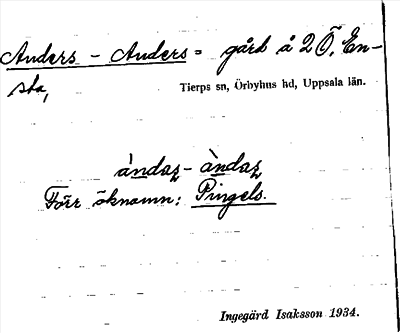 Anders - Anders = gård å 2 Ö. En-
sta,
Tierps sn, Örbyhus hd, Uppsala län.
ándaʐ - àndaʐ
Förr öknamn: Pingels.
Ingegärd Isaksson 1934.